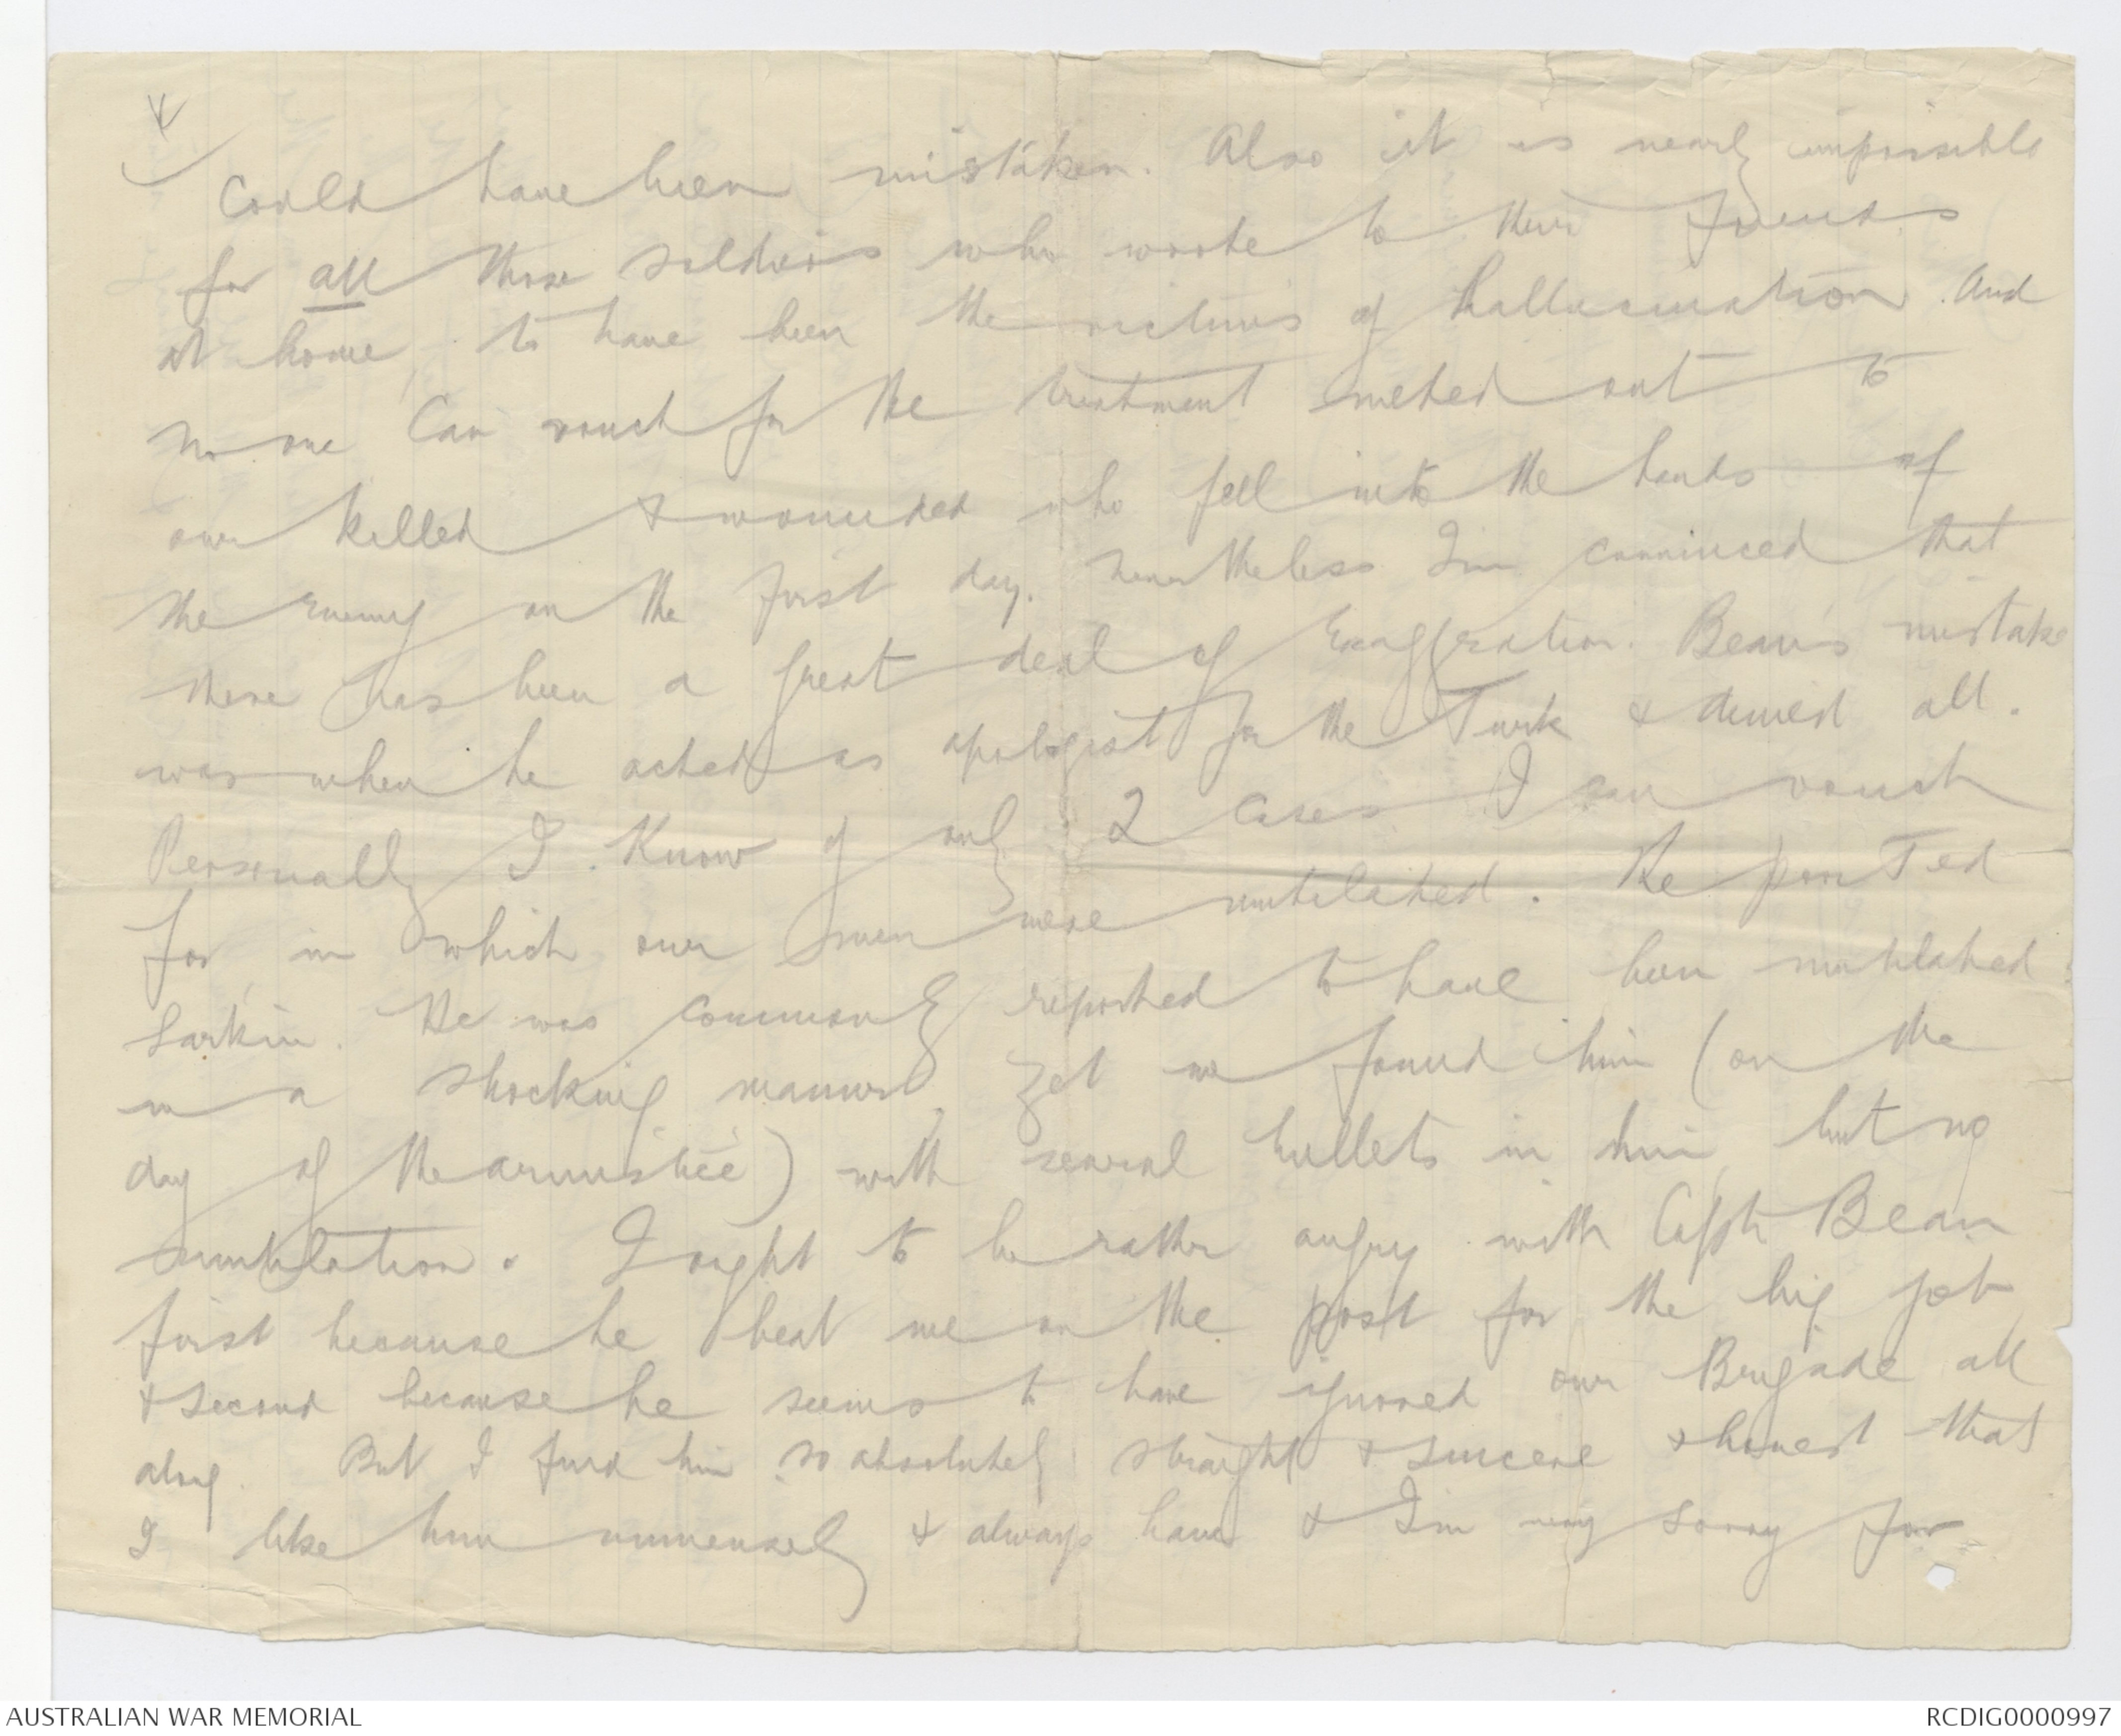 Could have been mistaken. Also it is nearly impossible
for all those soldiers who wrote to their friends
at home, to have been the victims of hallucination. And
no one can vouch for the treatment meted out to
our killed & wounded who fell into the hands of
the enemy on the first day. Nevertheless I'm convinced that
there has been a great deal of exaggeration. Bean's mistake
was when he acted as apologist for the Turk & denied all.
Personally I know of only 2 cases I can vouch
for, in which our men were mutilated. He quoted
Larkin. He was commonly reported to have been mutilated
in a shocking manner, yet we found him (on the
day of the armistice) with several bullets in him, but no
mutilation. I ought to be rather angry with Capt Bean
first because he beat me on the post for the big job
& second because he seems to have ignored our Brigade all
along. But I find him so absolutely straight & sincere & honest that
I like him immensely & always have & I'm very sorry for
AUSTRALIAN WAR MEMORIAL
RCDIG0000997